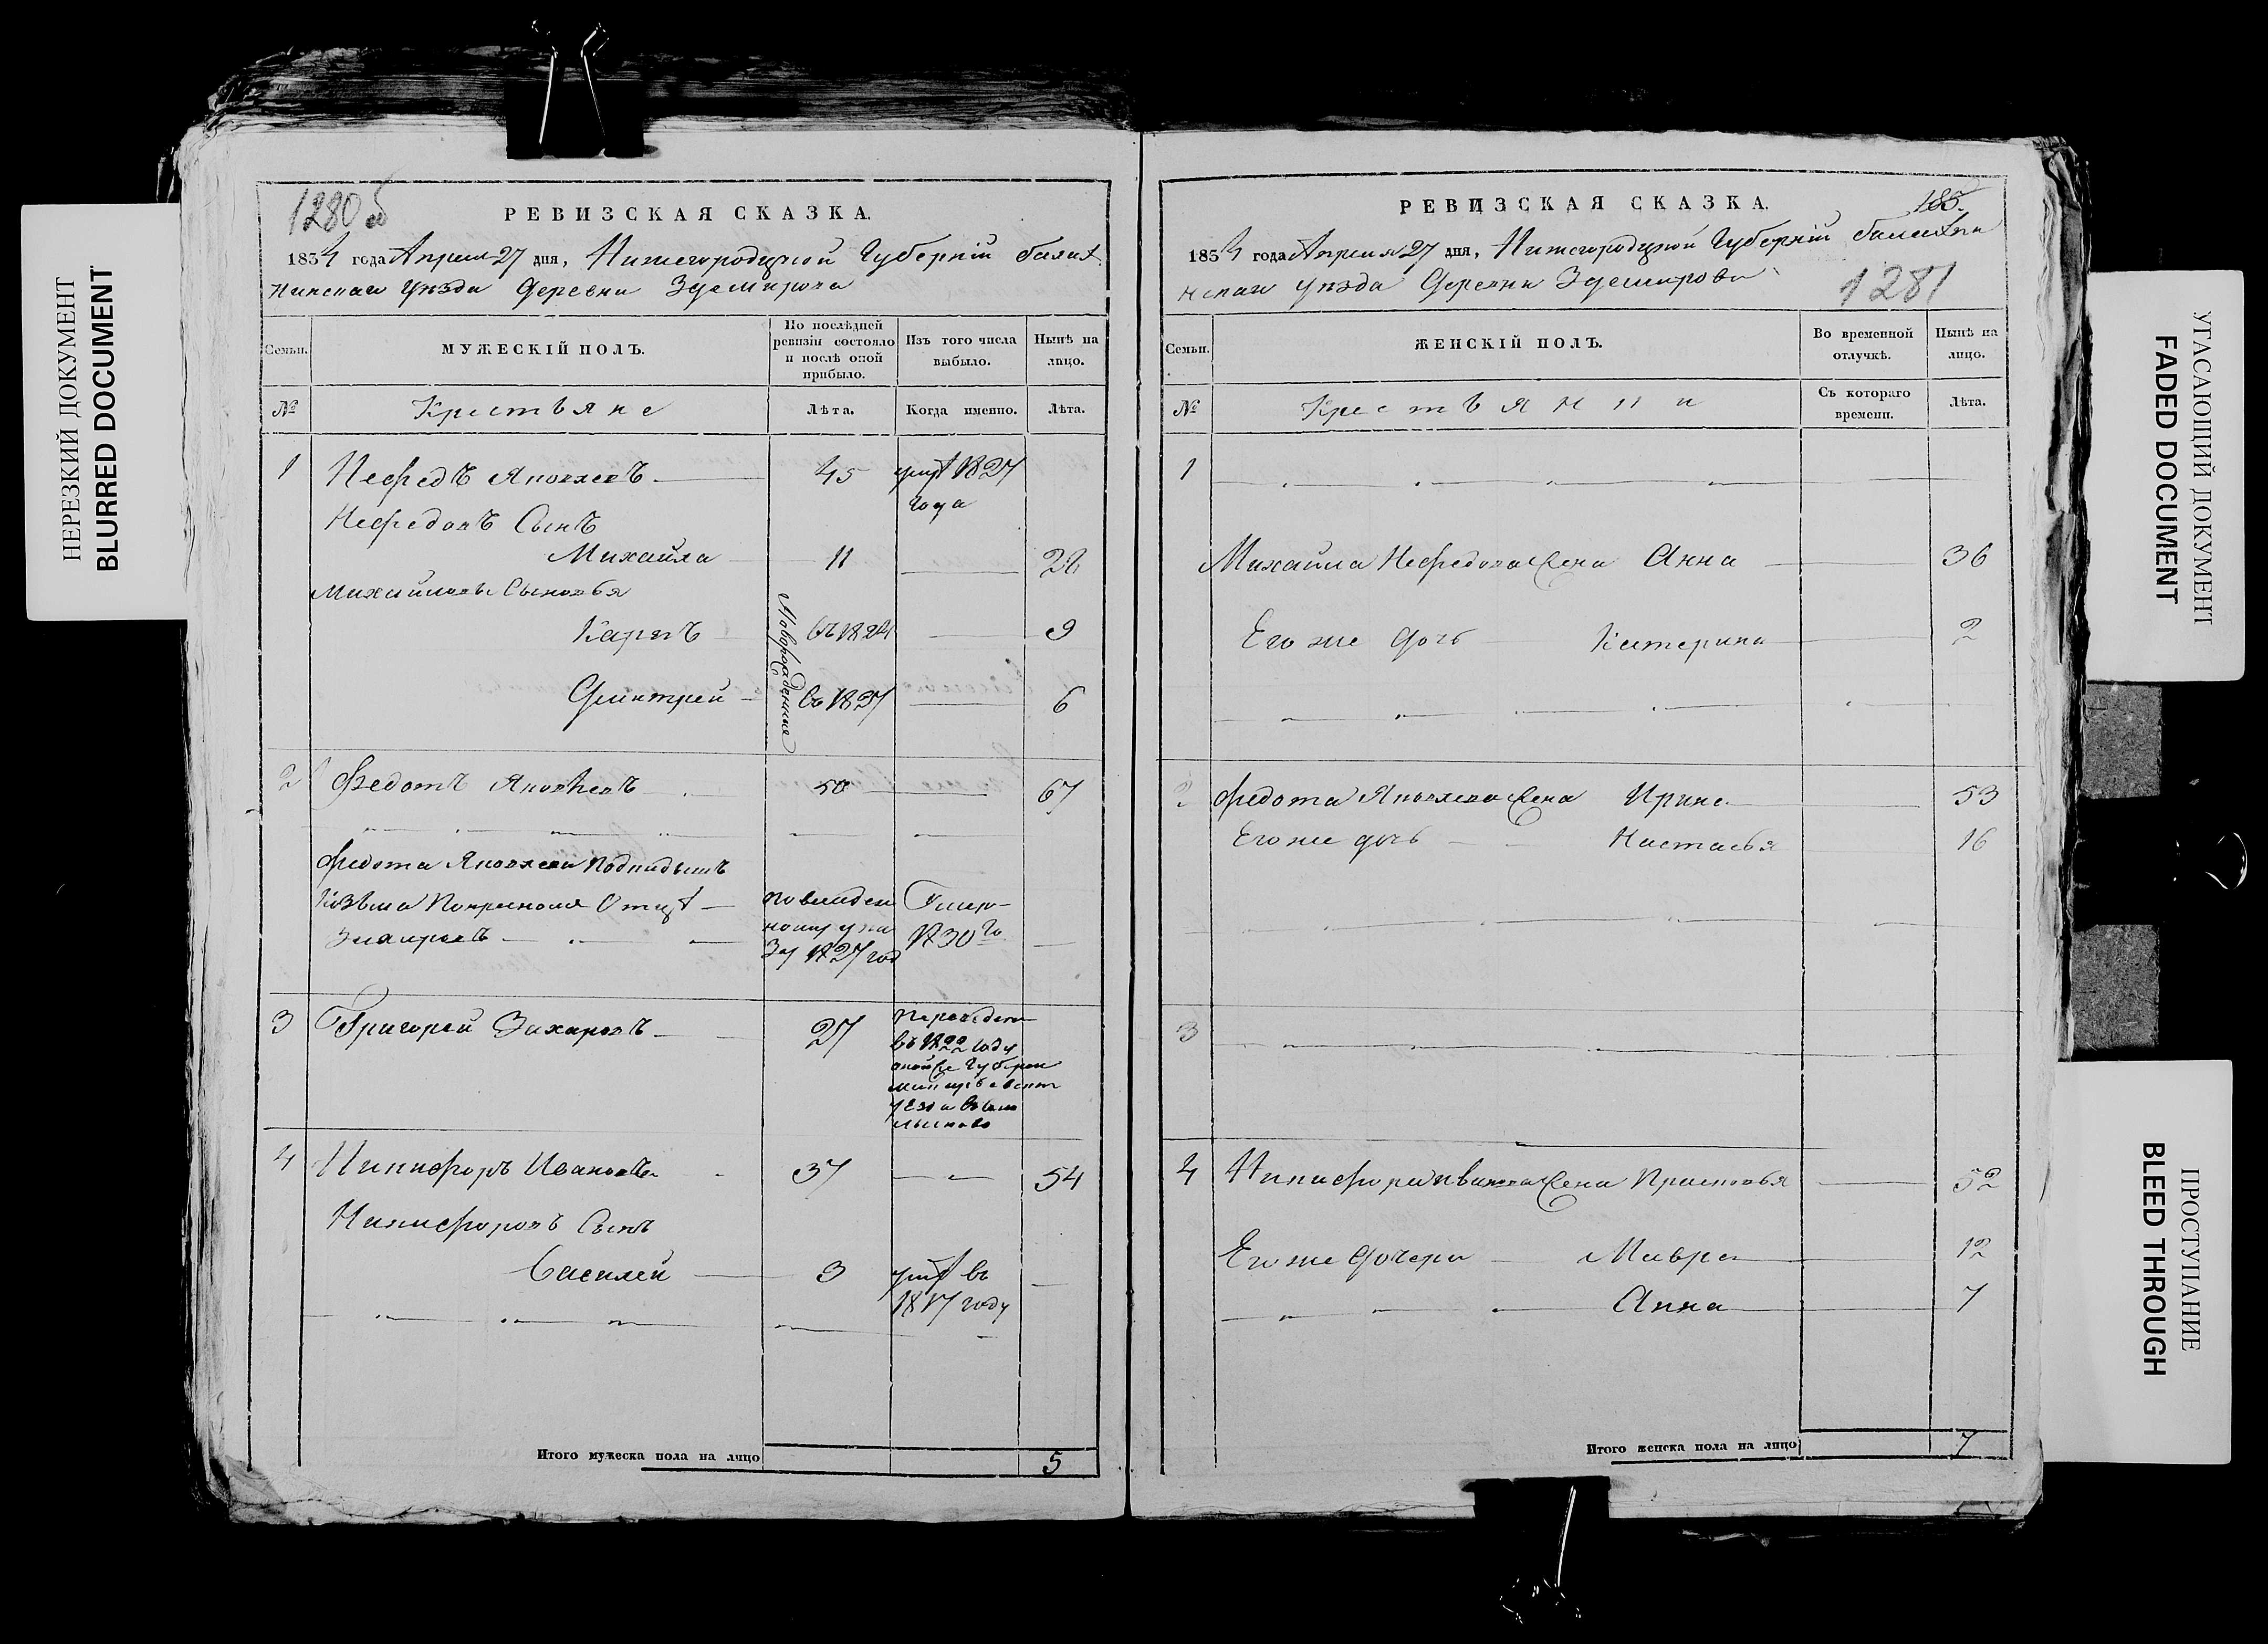 НЕРЕЗКИЙ ДОКУМЕНТ
BLURRED DOCUMENT
1280 об
РЕВИЗСКАЯ СКАЗКА.
1834 года Апреля 27 дня, Нижегородской Губерніи балах
нинскаго уѣзда деревни
Семьи.
МУЖЕСКІЙ ПОЛЪ.
По послѣдней ревизіи состояло и послѣ оной прибыло.
Изъ того числа выбыло.
Нынѣ на лицо.
№
Крестьяне
Лѣта.
Когда именно.
Лѣта.
1 Нефедъ Яковлевъ 45 1827
года
Нефедовъ Сынъ
Михайла 11 28
Михайловы Сыновья
Новорожденные
Карпъ въ 1824 9
Дмитрей въ 1827 6
2 Федотъ Яковлевъ 50 67
Федота Яковлева
Козьма
1827 год 1830 го
3 Григорей Захаровъ 27
въ 1822 году
4 Никифоръ Ивановъ 37 54
Никифоровъ Сынъ
Василей 3 въ
1817 году
Итого мужеска пола на лицо 5
РЕВИЗСКАЯ СКАЗКА.
185
1834 года Апреля 27 дня, Нижегородской Губерніи балахни
нскаго уѣзда Деревни
1281
Семьи.
ЖЕНСКІЙ ПОЛЪ.
Во временной отлучкѣ.
Нынѣ на лицо.
№
Крестьянки
Съ котораго времени.
Лѣта.
1
Михайла Нефедова жена Анна 36
Его же дочь Катерина 2
2 Федота Яковлева жена Ирина 53
Его же дочь Настасья 16
3
4 Никифора Иванова жена Прасковья 52
Его же дочери Мавра 12
Анна 7
Итого женска пола на лицо 7
УГАСАЮЩИЙ ДОКУМЕНТ
FADED DOCUMENT
ПРОСТУПАНИЕ
BLEED THROUGH